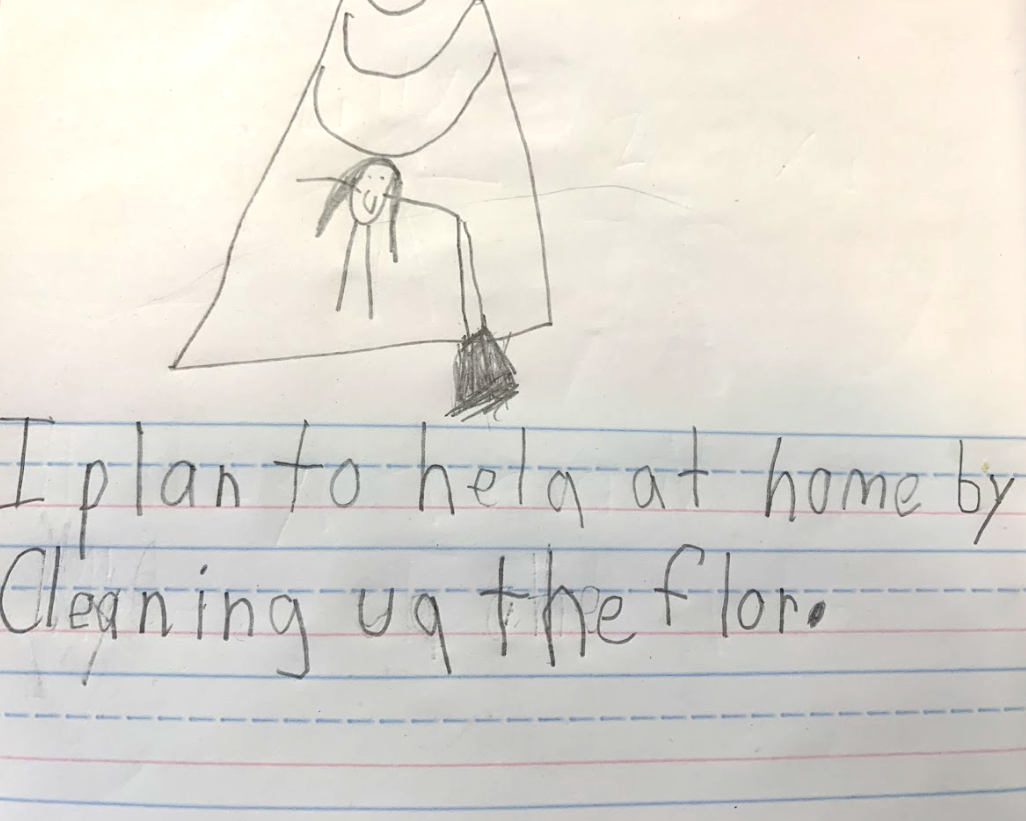 I plan to helq at home by
Cleaning uq the flor.